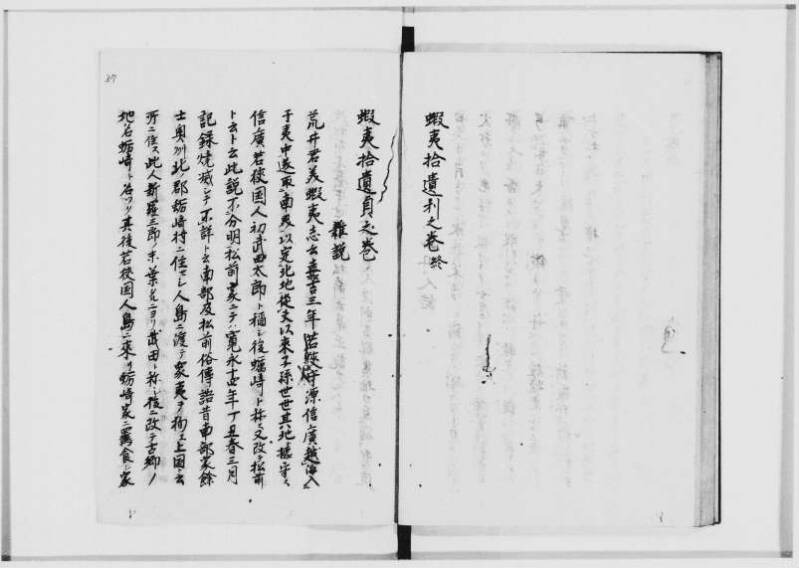 蝦夷拾遺利之巻終
蝦夷拾遺貞之巻
雜説
荒井君美蝦夷志云嘉吉三年若狭守源信廣越海入
于夷中遂取南界以定北地従文以來子孫世世其地據守ス
信廣若狭国人初武田太郎ト稱シ後蠣崎ト称シ又改テ松前
ト云ト云此説不分明松前家ニテハ寛永十四年丁丑春三月
記録焼滅シテ不詳ト云南部及松前俗傳諸昔南部家餘
士奥州北郡蛎崎村ニ住セシ人島ニ渡テ衆夷ヲ拘エ上国ト云
所ニ住ス此人新羅三郎ノ末葉ナルニヨリ武田ト称シ後ニ改テ古郷ノ
地名蛎崎ト名ツク其後若狭国人島ニ來リ蛎崎家ニ寓食シ家